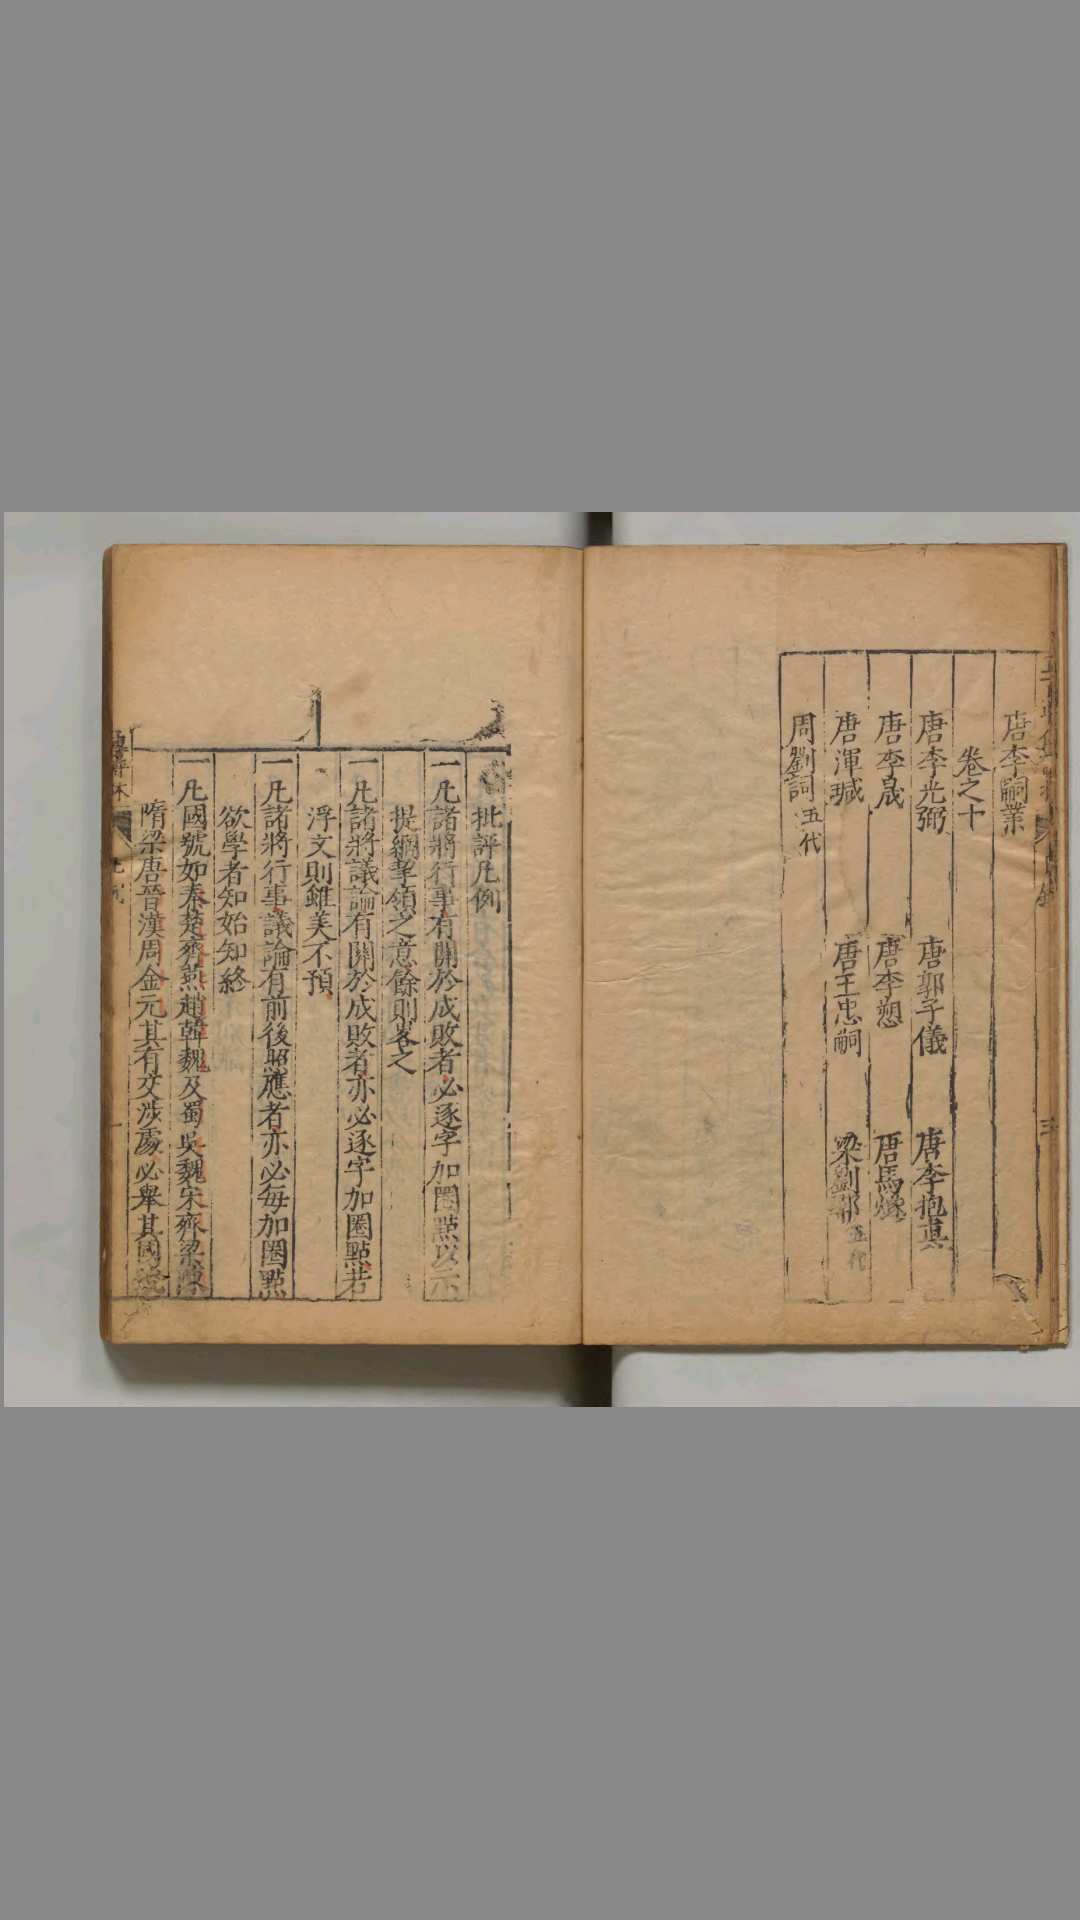 唐李嗣業
卷之十
唐李光弼 唐郭子儀 唐李抱真
唐李晟 唐李愬 唐馬燧
唐渾瑊 唐王忠嗣 梁劉鄩五代
周劉詞五代
批評凡例
一凡諸將行事有關於成敗者必逐字加圈點以示
提綱挈領之意餘則畧之
一凡諸將議論有關於成敗者亦必逐字加圈點若
浮文則雖美不預
一凡諸將行事議論有前後照應者亦必每加圈點
欲學者知始知終
一凡國號如秦楚齊燕趙韓魏及蜀吳魏宋齊梁陳
隋梁唐晉漢周金元其有交涉處必舉其國號